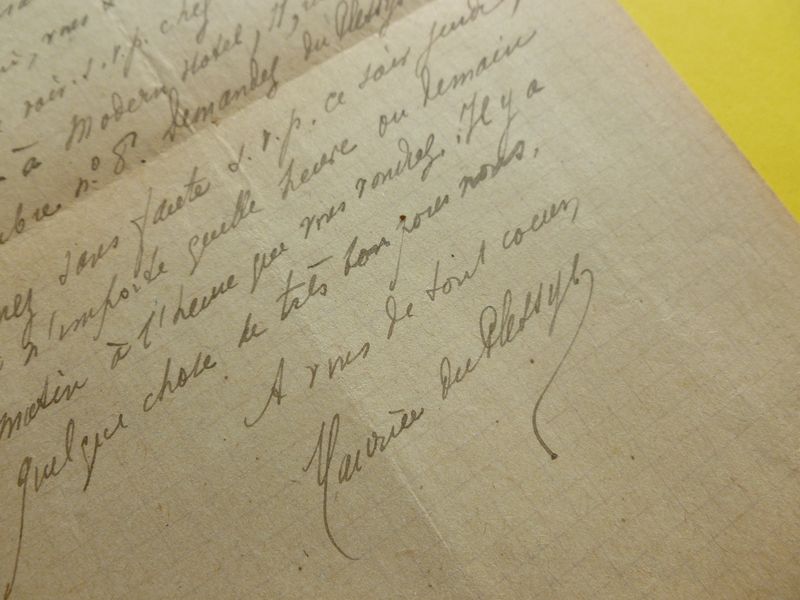 vous
voir. s.v.p. chez
à Modern Hotel, 7,
n° 8. Demandez du Plessys
sans faute s.v.p. ce soir jeudi,
n'importe quelle heure ou demain
matin à l'heure que vous voudrez. Il y a
quelque chose de très bon pour nous.
A vous de tout coeur,
Maurice du Plessys